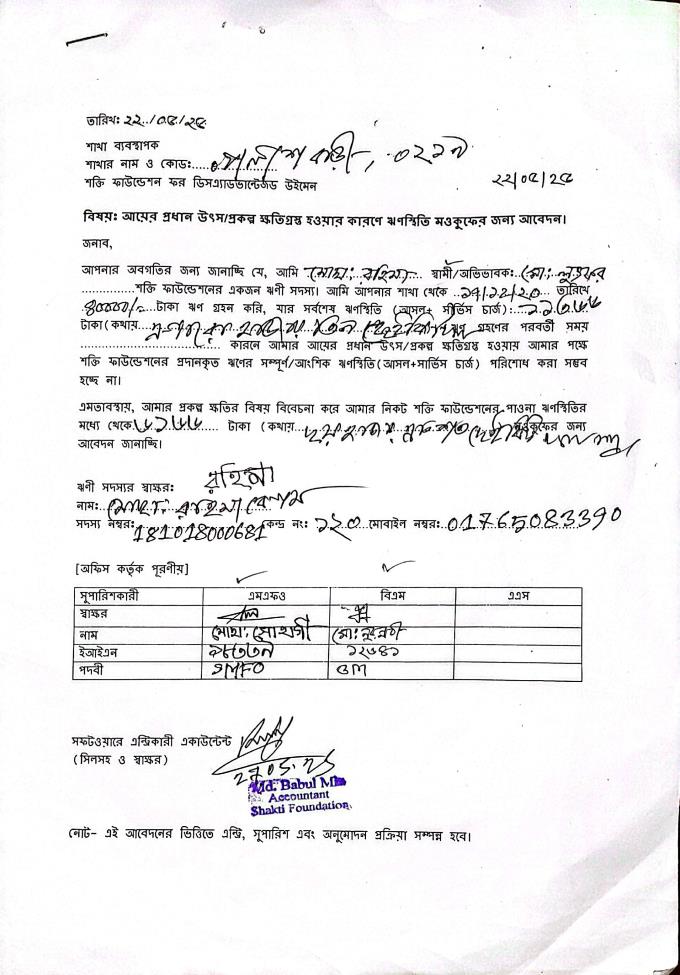 তারিখ: ২২/০৫/২৫
শাখা ব্যবস্থাপক
শাখার নাম ও কোড:......
শক্তি ফাউন্ডেশন ফর ডিসএ্যাডভান্টেজড উইমেন
২২/০৫/২৫
বিষয়: আয়ের প্রধান উৎস/প্রকল্প ক্ষতিগ্রস্ত হওয়ার কারণে ঋণস্থিতি মওকুফের জন্য আবেদন।
জনাব,
আপনার অবগতির জন্য জানাচ্ছি যে, আমি মোছা: রহিমা স্বামী/অভিভাবক: মো:
শক্তি ফাউন্ডেশনের একজন ঋণী সদস্য। আমি আপনার শাখা থেকে তারিখে
৪০০০০/= টাকা ঋণ গ্রহন করি, যার সর্বশেষ ঋণস্থিতি (আসল+ সার্ভিস চার্জ):
টাকা (কথায় গ্রহণের পরবর্তী সময়
কারনে আমার আয়ের প্রধান উৎস/প্রকল্প ক্ষতিগ্রস্ত হওয়ায় আমার পক্ষে
শক্তি ফাউন্ডেশনের প্রদানকৃত ঋণের সম্পূর্ণ/আংশিক ঋণস্থিতি(আসল+সার্ভিস চার্জ) পরিশোধ করা সম্ভব
হচ্ছে না।
এমতাবস্থায়, আমার প্রকল্প ক্ষতির বিষয় বিবেচনা করে আমার নিকট শক্তি ফাউন্ডেশনের পাওনা ঋণস্থিতির
মধ্যে থেকে টাকা (কথায় মওকুফের জন্য
আবেদন জানাচ্ছি।
ঋণী সদস্যর স্বাক্ষর: রহিমা
নাম: মোছা: রহিমা বেগম
সদস্য নম্বর: 181018000681 কেন্দ্র নং: ১২০ মোবাইল নম্বর: 01765083390
[অফিস কর্তৃক পূরণীয়]
সুপারিশকারী এমএফও বিএম এএস
স্বাক্ষর
নাম মোছা: মো:
ইআইএন
পদবী SMFO BM
সফটওয়ারে এন্ট্রিকারী একাউন্টেন্ট
(সিলসহ ও স্বাক্ষর)
Md. Babul Mia
Accountant
Shakti Foundation.
নোট- এই আবেদনের ভিত্তিতে এন্ট্রি, সুপারিশ এবং অনুমোদন প্রক্রিয়া সম্পন্ন হবে।